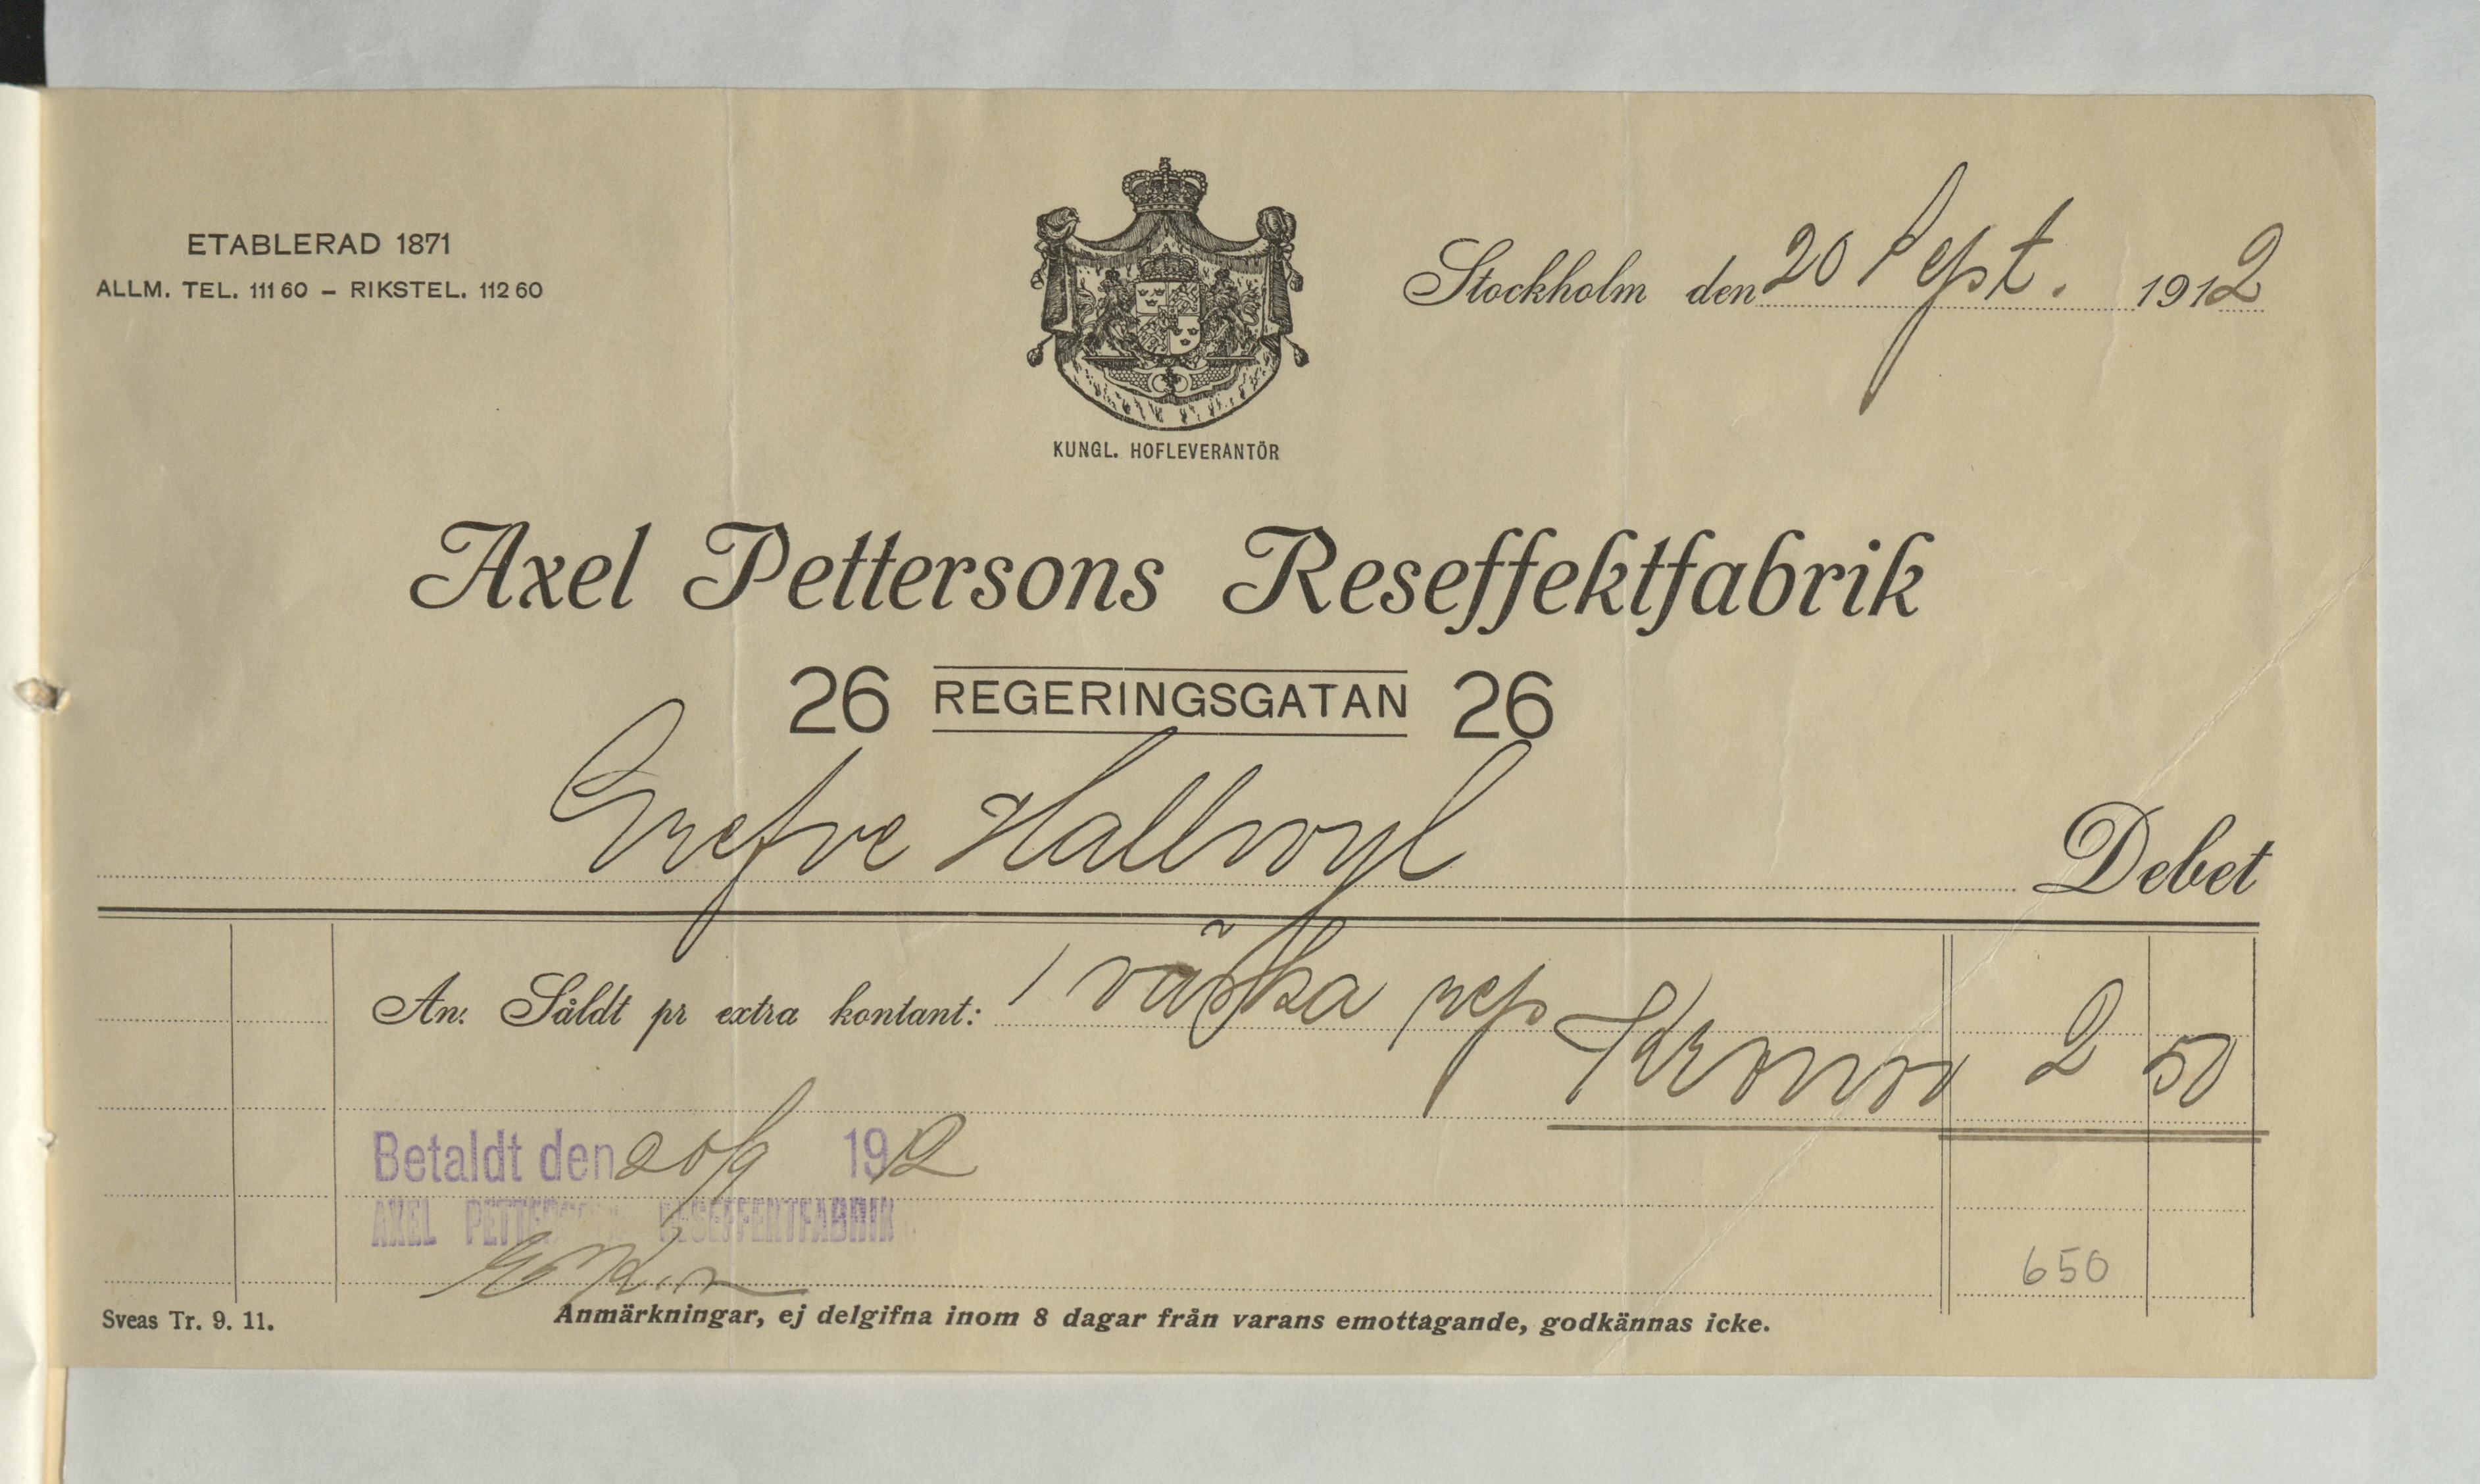 ETABLERAD 1871
ALLM. TEL. 111 60 – RIKSTEL. 112 60
Stockholm den 20 Sept. 1912
KUNGL. HOFLEVERANTÖR
Axel Pettersons Reseffektfabrik
26 REGERINGSGATAN 26
Grefve Hallwyl Debet
An: Såldt pr extra kontant: 1 väska rep
Kronor 2 50
Betaldt den 20/9 1912
AXEL PETTERSONS RESEFFEKTFABRIK
650
Sveas Tr. 9. 11.
Anmärkningar, ej delgifna inom 8 dagar från varans emottagande, godkännas icke.